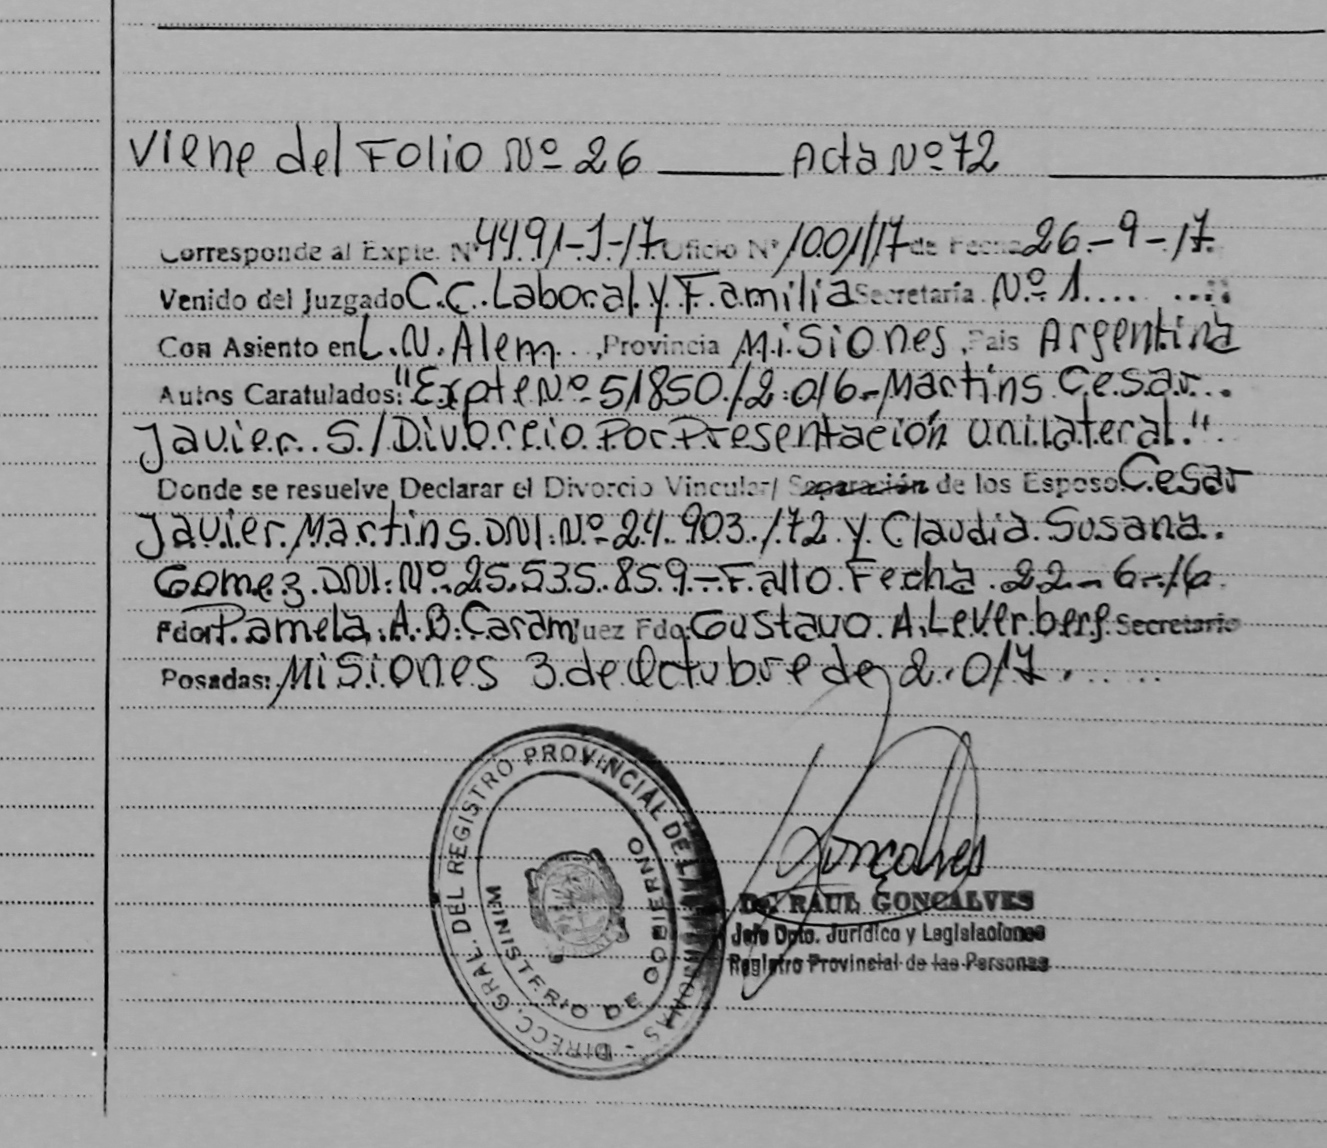 Viene del Folio Nº 26 ____ Acta Nº 72
Corresponde al Expte. Nº 4491-J-17 Oficio Nº 1001/17 de Fecha 26-9-17
Venido del Juzgado C.C. Laboral y Familia Secretaría Nº 1
Con Asiento en L.N. Alem, Provincia Misiones, País Argentina
Autos Caratulados: "Expte Nº 51850/2016 - Martins Cesar
Javier S/Divorcio Por Presentación unilateral".
Donde se resuelve Declarar el Divorcio Vincular/ Separación de los Esposo Cesar
Javier Martins DNI. Nº 24.903.172 y Claudia Susana
Gomez DNI. Nº 25.535.859 - Fallo Fecha 22-6-16
Fdor. Pamela A.B. Caram uez Fdo. Gustavo A. Leverberg Secretario
Posadas: Misiones 3 de Octubre de 2.017
DIRECC. GRAL. DEL REGISTRO PROVINCIAL DE LAS PERSONAS -
MINISTERIO DE GOBIERNO
Gonçalves
Dr. RAUL GONCALVES
Jefe Dpto. Jurídico y Legislaciones
Registro Provincial de las Personas